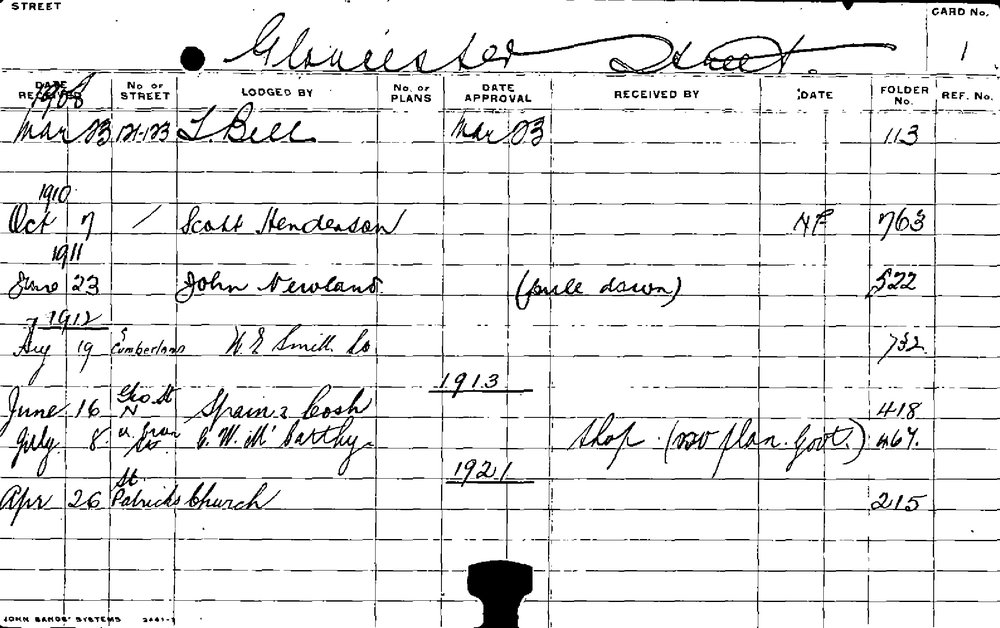 STREET
CARD No.
Gloucester Street.
1
DATE RECEIVED No. OF STREET LODGED BY No. OF PLANS DATE APPROVAL RECEIVED BY DATE FOLDER No. REF. No.
1908
Mar 23 121-123 T. Bell Mar 23 113
1910
Oct 7 / Scott Henderson NP 763
1911
June 23 John Newland (pull down) 522
1912
Aug 19 & Cumberland W. E. Smith Co 732
1913
Geo. St
June 16 N Spain & Cosh 418
July 8 C. W. McCarthy Shop. (no plan. Govt.) 467.
1921
St
Apr 26 Patricks Church 215
JOHN SANDS' SYSTEMS